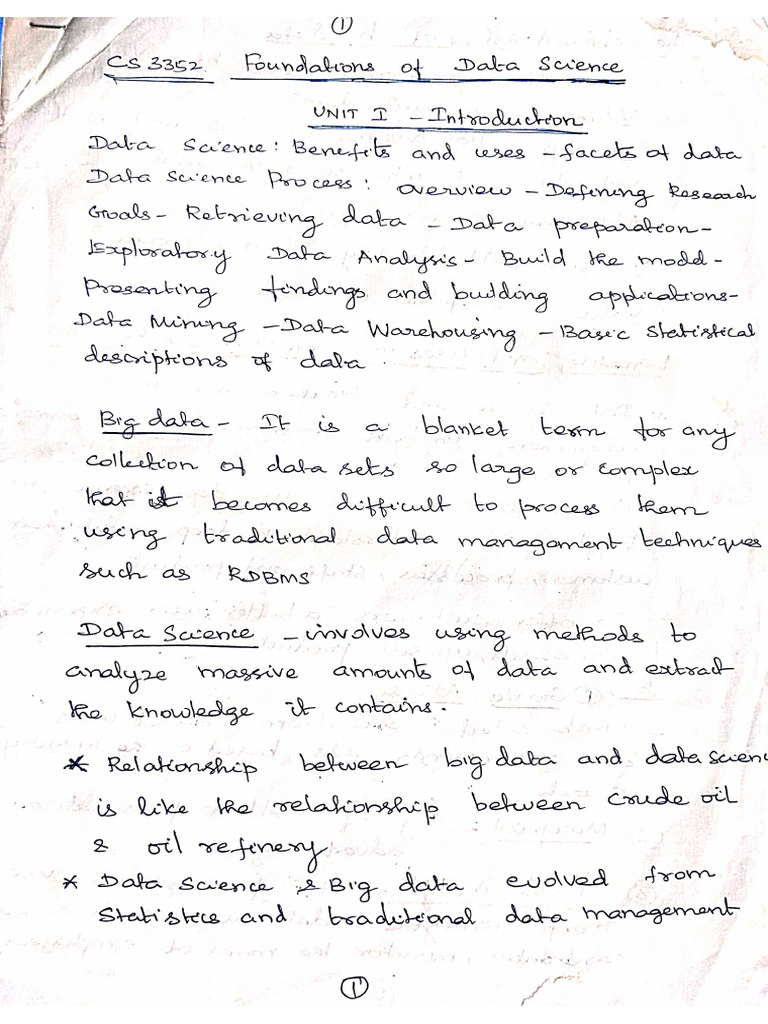 1
CS 3352 Foundations of Data Science
UNIT I - Introduction
Data Science: Benefits and uses - facets of data
Data Science Process: Overview - Defining Research
Goals - Retrieving data - Data preparation -
Exploratory Data Analysis - Build the model -
Presenting findings and building applications -
Data Mining - Data Warehousing - Basic Statistical
descriptions of data.
Big data - It is a blanket term for any
collection of data sets so large or complex
that it becomes difficult to process them
using traditional data management techniques
such as RDBMS
Data Science - involves using methods to
analyze massive amounts of data and extract
the knowledge it contains.
* Relationship between big data and data scienc
is like the relationship between crude oil
& oil refinery
* Data Science & Big data evolved from
Statistics and traditional data management
1